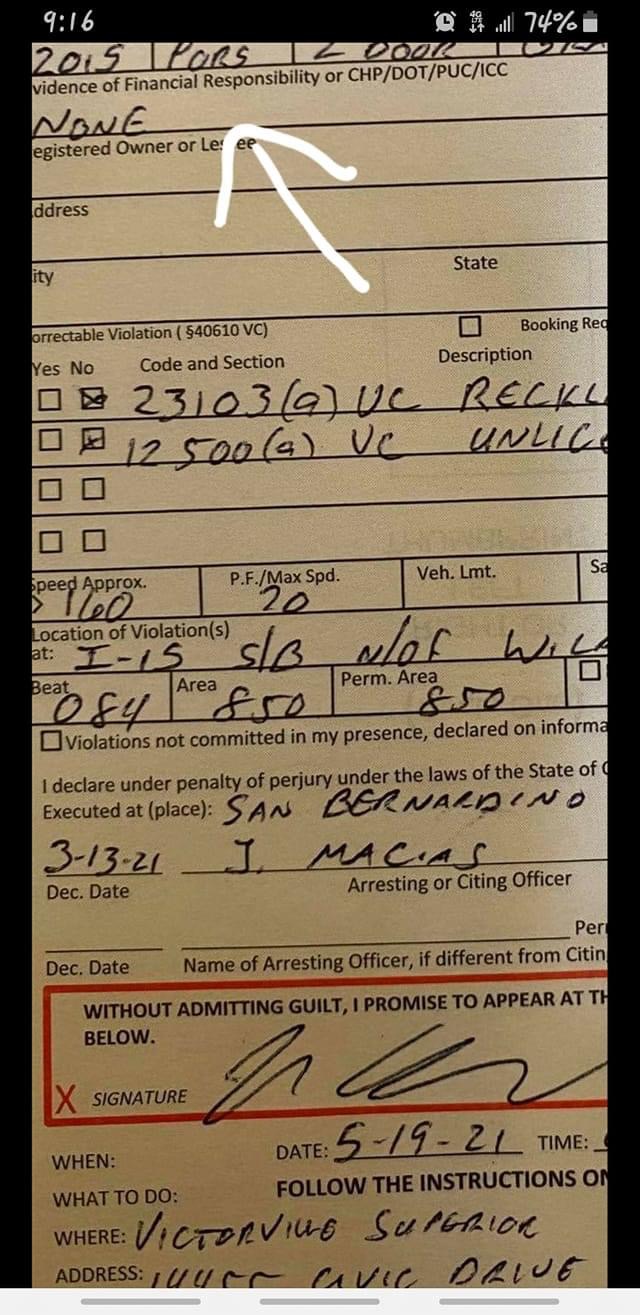 9:16 4G 74%
2015 PORS 2 DOOR
vidence of Financial Responsibility or CHP/DOT/PUC/ICC
NONE
egistered Owner or Les ee
ddress
ity State
orrectable Violation ( §40610 VC) Booking Req
Yes No Code and Section Description
23103(a) VC RECKL
12500(a) VC UNLIC
Speed Approx. P.F./Max Spd. Veh. Lmt. Sa
> 160 70
Location of Violation(s)
at: I-15 S/B N/OF WIL
Beat Area Perm. Area
084 850 850
Violations not committed in my presence, declared on informa
I declare under penalty of perjury under the laws of the State of C
Executed at (place): SAN BERNARDINO
3-13-21 J. MACIAS
Dec. Date Arresting or Citing Officer
Per
Dec. Date Name of Arresting Officer, if different from Citin
WITHOUT ADMITTING GUILT, I PROMISE TO APPEAR AT TH
BELOW.
X SIGNATURE
WHEN: DATE: 5-19-21 TIME:
WHAT TO DO: FOLLOW THE INSTRUCTIONS ON
WHERE: VICTORVILLE SUPERIOR
ADDRESS: 14455 CIVIC DRIVE